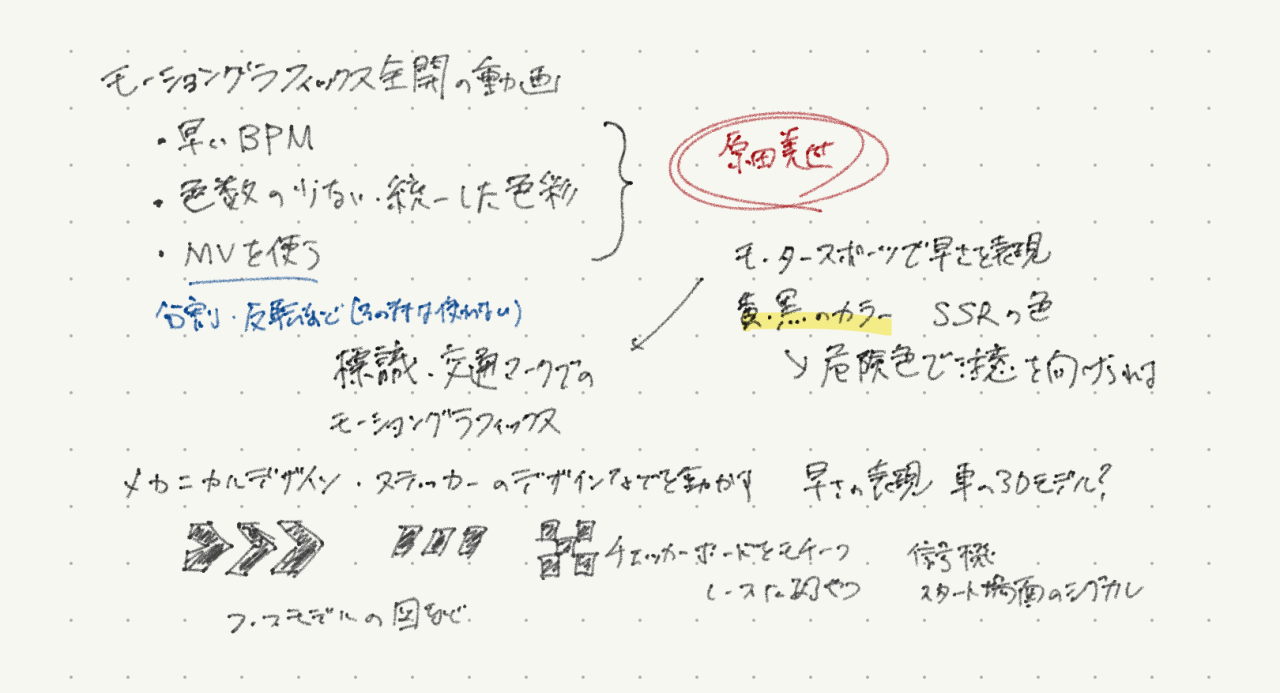 モーショングラフィックス全開の動画
・早いBPM
・色数の少ない・統一した色彩
・MVを使う
分割・反転など(その他は使わない)
原田美世
モータースポーツで早さを表現
黄・黒のカラー SSRの色
↘危険色で注意を向けられる
標識・交通マークでの
モーショングラフィックス
メカニカルデザイン・ステッカーのデザインなどを動かす 早さの表現 車の3Dモデル?
チェッカーボードをモチーフ
レースに 的なやつ
信号機
スタート場面のシグナル
モデルの図など